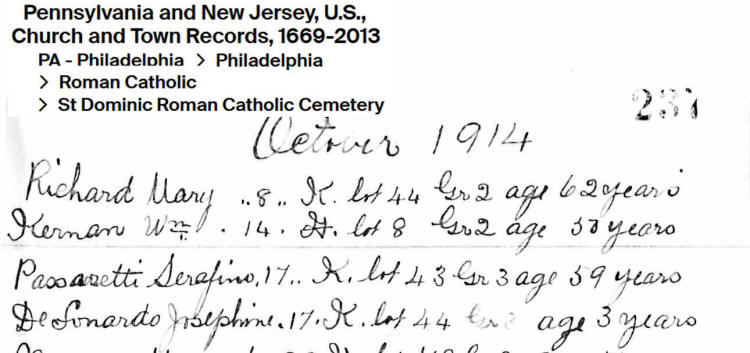 Pennsylvania and New Jersey, U.S.,
Church and Town Records, 1669-2013
PA - Philadelphia > Philadelphia
> Roman Catholic
> St Dominic Roman Catholic Cemetery
237
October 1914
Richard Mary „ 8 „ K. lot 44 Gr 2 age 62 years
Kernan Wm. 14. H. lot 8 Gr 2 age years
Passaretti Serafino. 17.. K. lot 43 Gr 3 age 59 years
De Sonardo Josephine. 17. K. lot 44 Gr 3 age 3 years